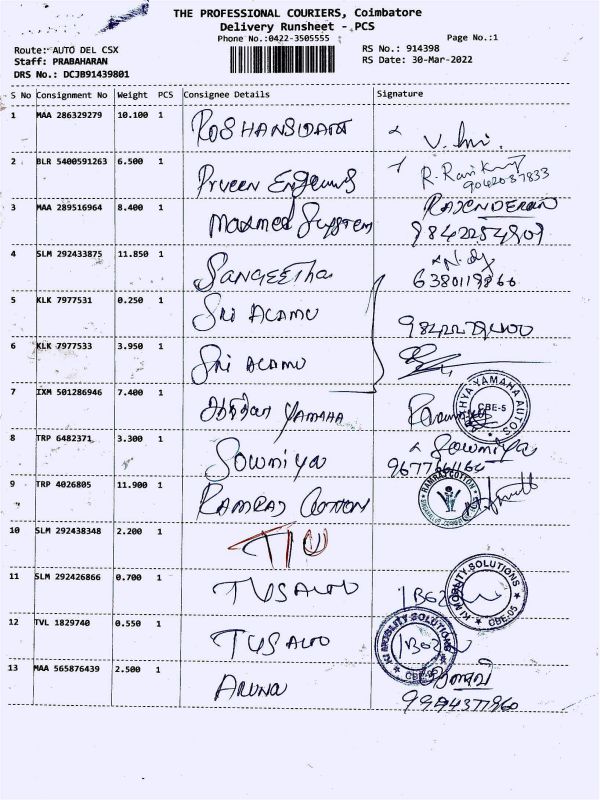 THE PROFESSIONAL COURIERS, Coimbatore
Delivery Runsheet - PCS
Phone No.:0422-3505555
Page No.:1
Route: AUTO DEL CSX
RS No.: 914398
Staff: PRABAHARAN
RS Date: 30-Mar-2022
DRS No.: DCJB91439801
S No Consignment No Weight PCS Consignee Details Signature
1 MAA 286329279 10.100 1
2 BLR 5400591263 6.500 1 Praveen
9042037833
3 MAA 289516964 8.400 1 RAJENDERAN
9842254909
4 SLM 292433875 11.850 1 SANGEETHA
6380119866
5 KLK 7977531 0.250 1 SRI
6 KLK 7977533 3.950 1 SRI
7 IXM 501286946 7.400 1 YAMAHA
YAMAHA AUTOS CBE-5
8 TRP 6482371 3.300 1 Sowmiya Sowmiya
9 TRP 4026805 11.900 1 RAMRAJ COTTON
RAMRAJ COTTON
10 SLM 292438348 2.200 1
11 SLM 292426866 0.700 1 TVS AUTO
KI MOBILITY SOLUTIONS CBE-05
12 TVL 1829740 0.550 1 TVS AUTO
KI MOBILITY SOLUTIONS CBE-05
13 MAA 565876439 2.500 1 ARUNA